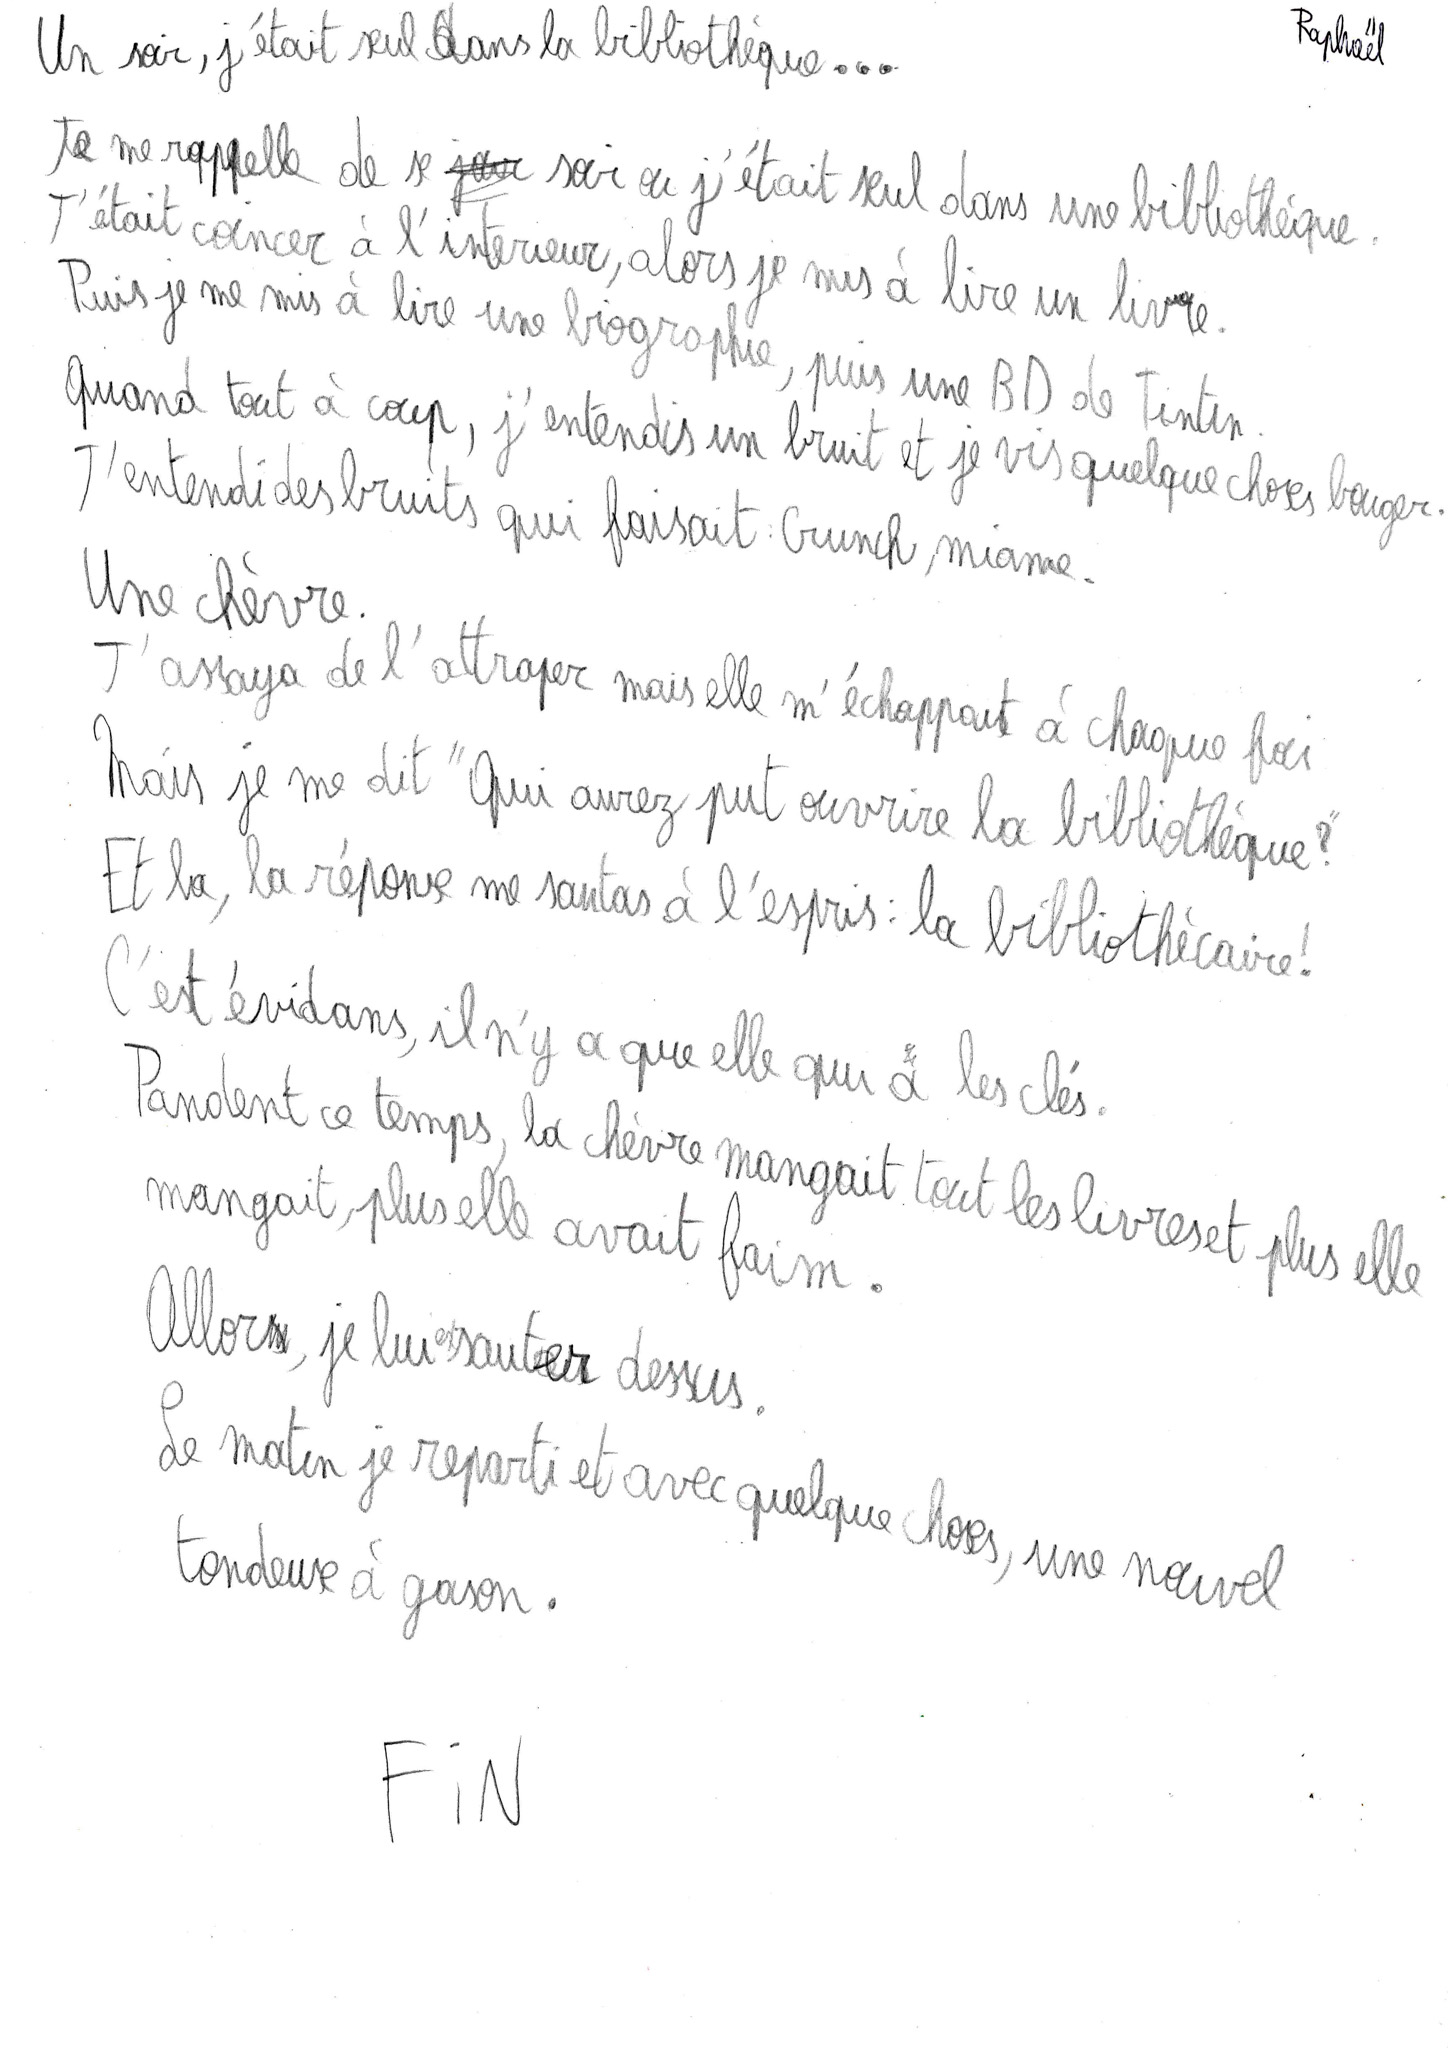 Raphaël
Un soir, j'était seul dans la bibliothèque...
Je me rappelle de se soir ou j'était seul dans une bibliothéque.
J'était coincer à l'interieur, alors je mis à lire un livre.
Puis je me mis à lire une biographie, puis une BD de Tintin.
Quand tout à coup, j'entendis un bruit et je vis quelque choses bouger.
J'entendi des bruits qui faisait : Crunch, miame.
Une chèvre.
J'assaya de l'attraper mais elle m'échappait à chaque foi
Mais je me dit "Qui aurez put ouvrire la bibliothéque?"
Et la, la réponse me sautas à l'espris : la bibliothécaire!
C'est évidans, il n'y a que elle qui a les clés.
Pandent ce temps, la chèvre mangait tout les livres et plus elle
mangait, plus elle avait faim.
Allors, je lui sauter dessus.
Le matin je reparti et avec quelque choses, une nouvel
tondeuse à gason.
FiN